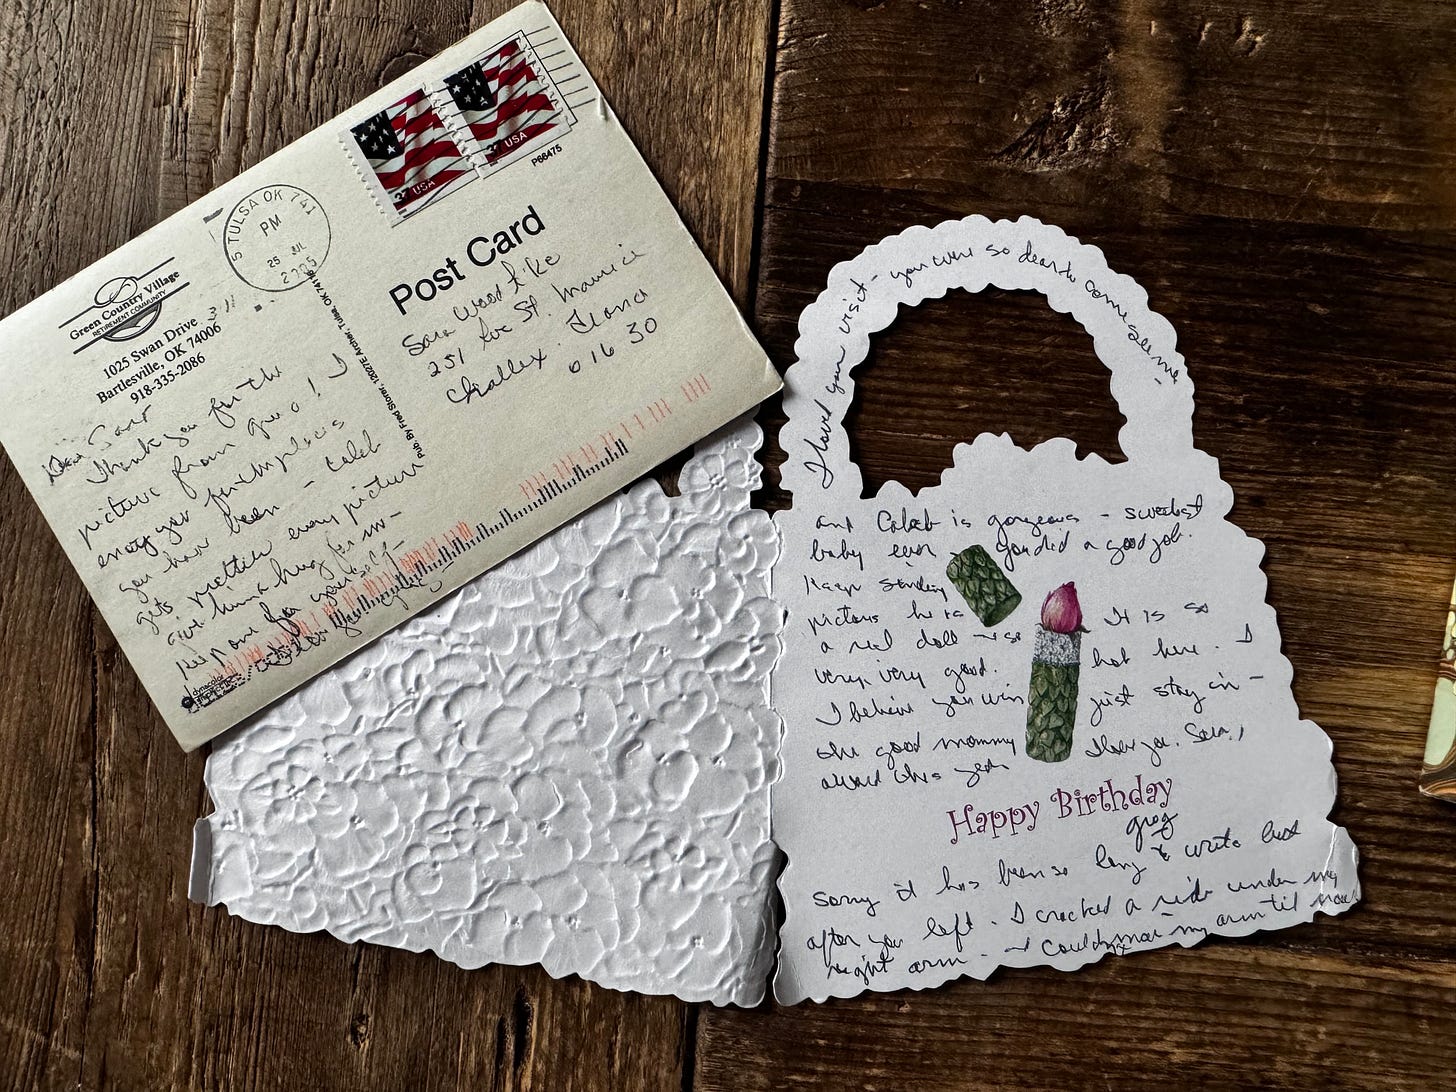 USA
USA
P66475
TULSA OK 741
PM
25 JUL
2005
Green Country Village
RETIREMENT COMMUNITY
1025 Swan Drive
Bartlesville, OK 74006
918-335-2086
Post Card
Pub. By Fred Storer, 12027E Archer, Tulsa, OK 74116
Sara Wood
251 St. Maurice
Challex
01630
Dear Sara
Thank you for the
picture from you! I
enjoy your
you have been - Caleb
gets prettier every picture
give him a hug for me -
Keep one for yourself
dynacolor
I loved your visit - you were so dear to come see me -
and Caleb is gorgeous - sweetest
baby ever you did a good job.
Keep sending
pictures he is
a real doll - so
very, very good.
I believe you win
the good mommy
award this year
It is so
hot here. I
just stay in -
I love you, Sara,
Happy Birthday
Greg
Sorry it has been so long to write but
after you left. I cracked a rib under my
right arm. - I couldn't move my arm til now.